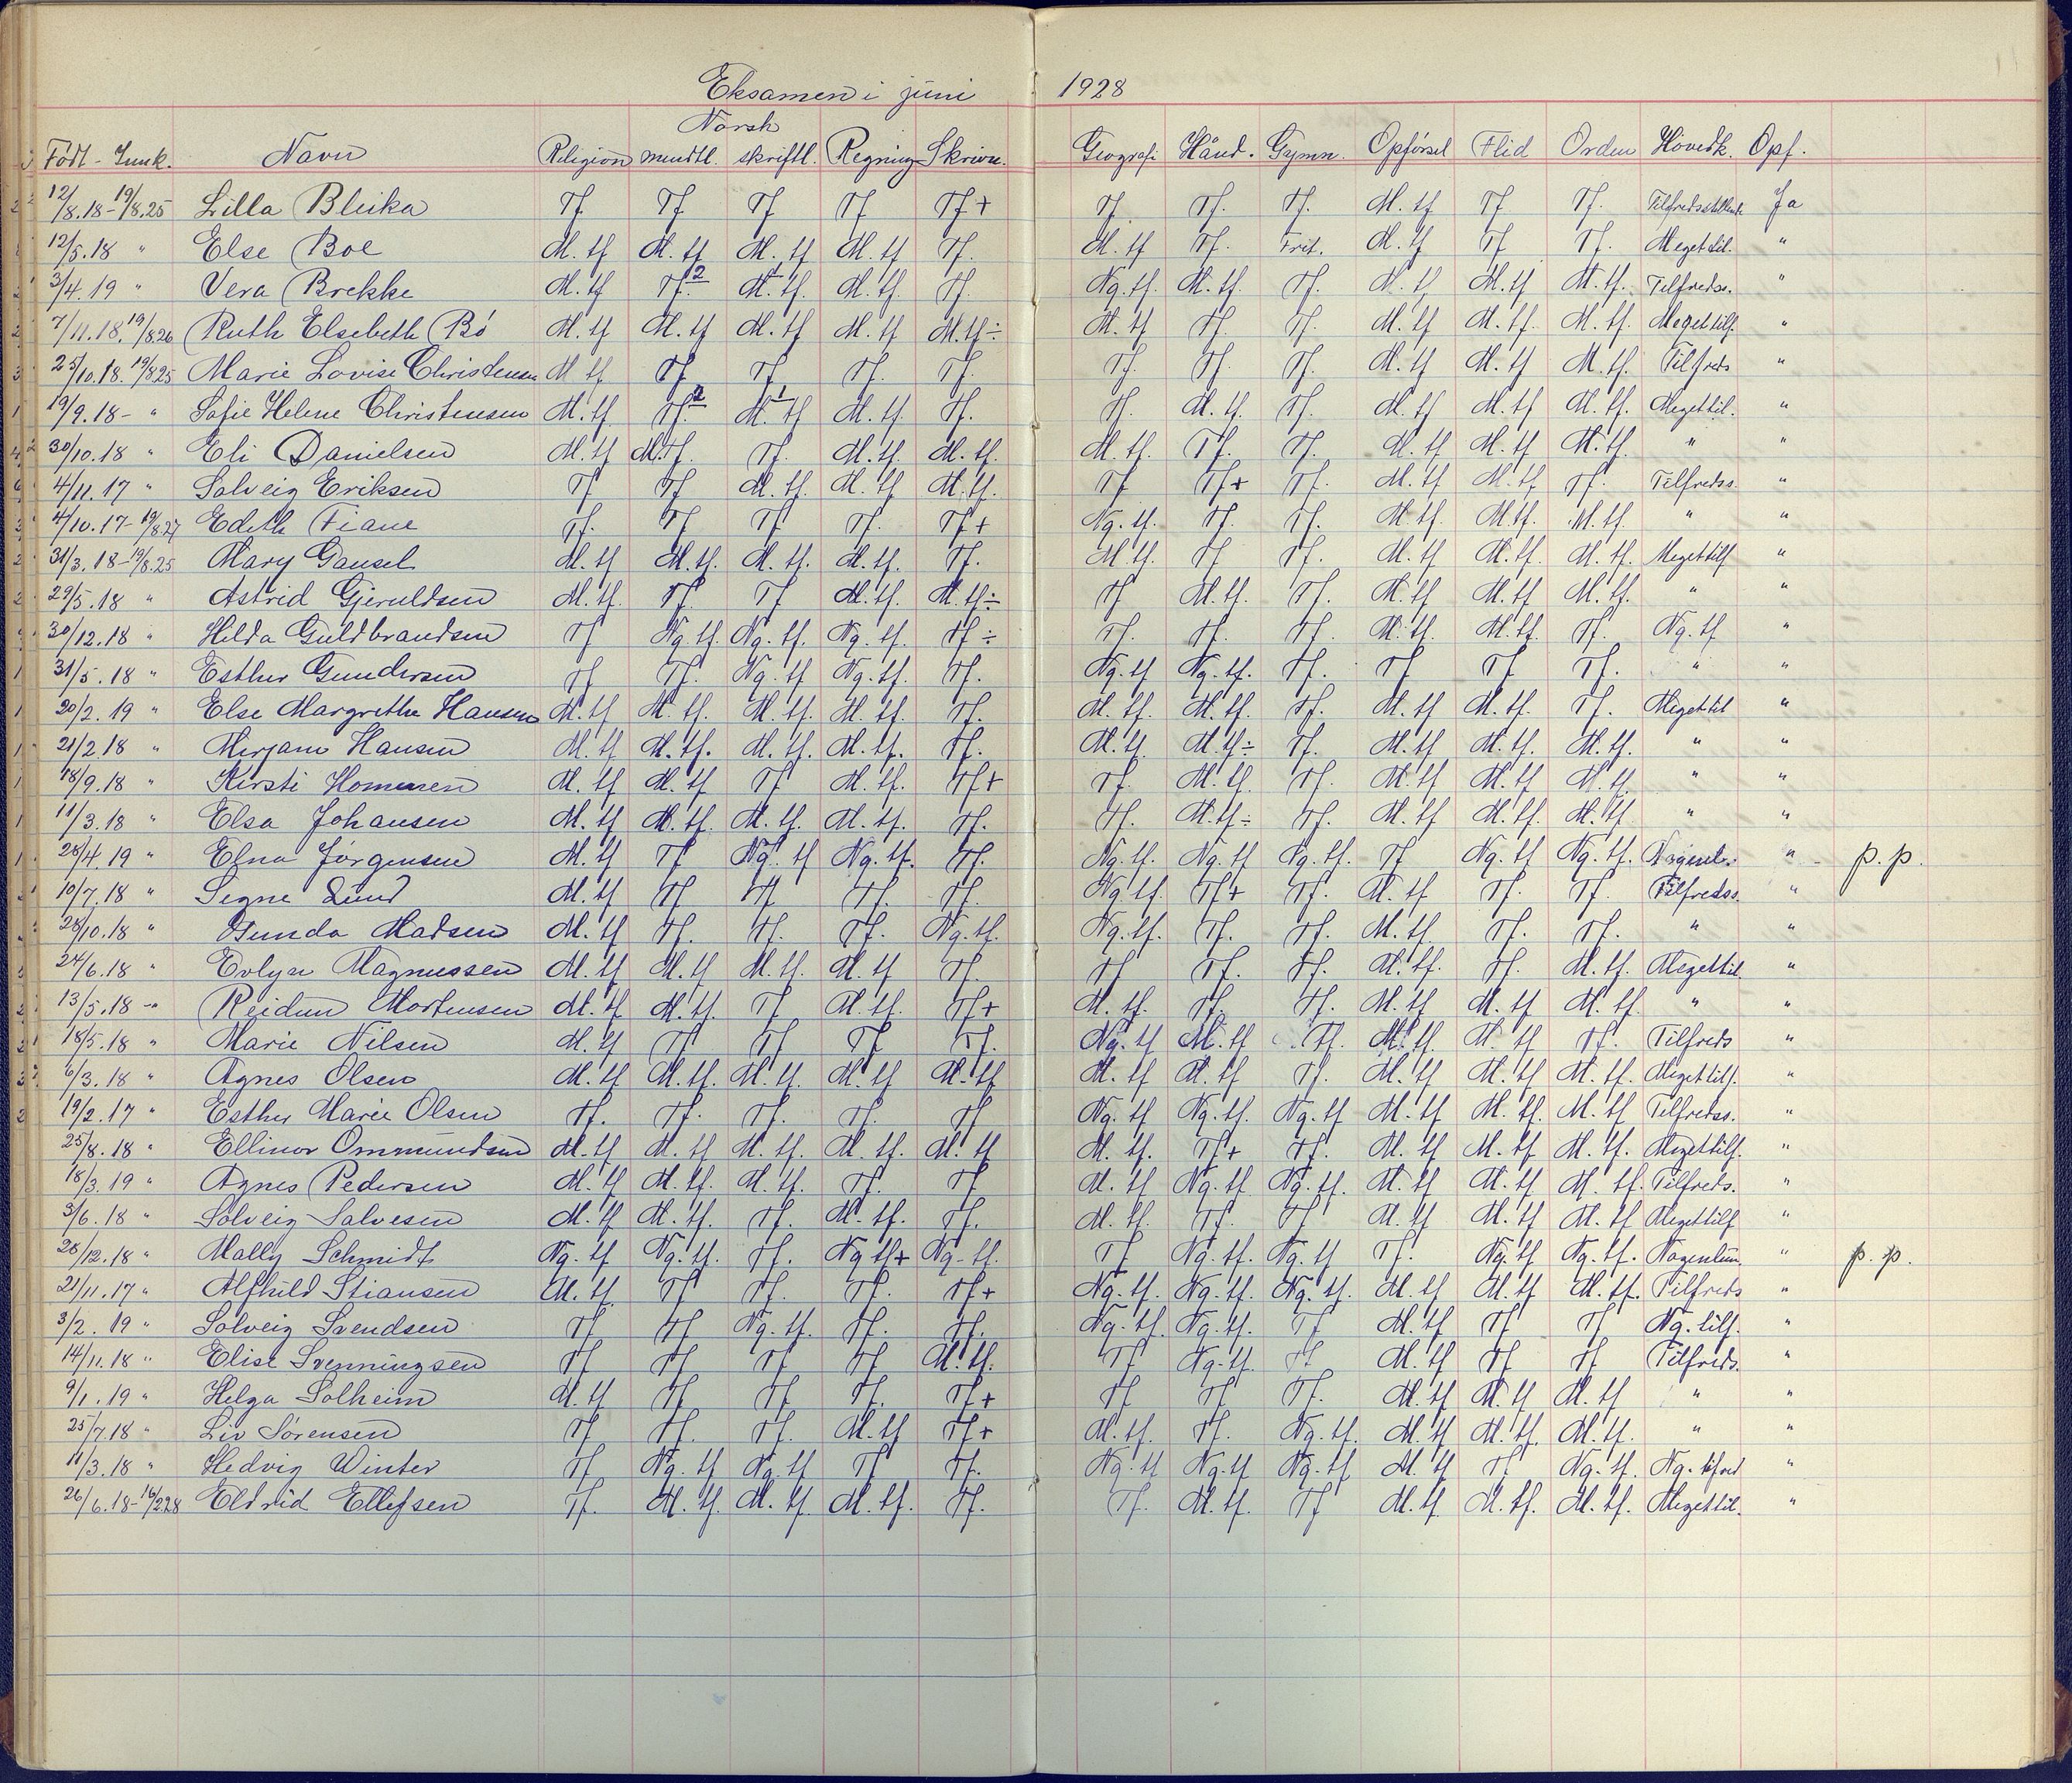 Eksamen i juni 1928
Norsk
Født - Innk. Navn Religion mundtl. skriftl. Regning Skrivn. Geografi Hånd. Gymn. Opførsel Flid Orden Hovedk. Opf.
12/8.18 - 19/8.25 Lilla Bleika Tf Tf Tf Tf Tf+ Tf. Tf. Tf. M.tf Tf Tf. Tilfredsstillende Ja
12/5.18 " Else Boe M.tf M.tf M.tf M.tf Tf. M.tf Tf. Frit. M.tf Tf Tf. Meget til. "
3/4.19 " Vera Brekke M.tf Tf.2 M.tf.1 M.tf. Tf. Ng.tf. M.tf. Tf. M.tf M.tf M.tf. Tilfredss. "
7/11.18. 19/8.26 Ruth Elsebeth Bö M.tf M.tf M.tf M.tf M.tf÷ M.tf Tf. Tf. M.tf M.tf. M.tf. Meget tilf. "
25/10.18. 19/8.25 Marie Lovise Christensen M tf Tf Tf Tf. Tf. Tf. Tf. Tf. M.tf M.tf M.tf. Tilfreds "
19/9.18 - " Sofie Helene Christensen M.tf. Tf.2 M.tf1 M.tf. Tf. Tf. M.tf. Tf. M.tf M.tf M.tf. Meget til. "
30/10.18 " Eli Danielsen M.tf M.Tf. Tf. M.tf. M.tf. M.tf. Tf. Tf. M.tf M.tf M.tf. " "
4/11.17 " Solveig Eriksen Tf Tf M.tf. M.tf. M.tf. Tf Tf+ Tf. M.tf M.tf Tf. Tilfredss. "
4/10.17 - 19/8.27 Edith Fiane Tf. Tf Tf Tf. Tf+ Ng.tf. Tf. Tf. M.tf. M.tf. M.tf. " "
31/3.18 - 19/8.25 Mary Gausel M.tf M.tf. M.tf. M.tf. Tf. M.tf. Tf Tf. M.tf M.tf. M.tf. Meget tilf "
29/5.18 " Astrid Gjeruldsen M.tf. Tf. Tf M.tf. M.tf÷ Tf M.tf. Tf. M.tf M.tf. M.tf. " "
30/12.18 " Hilda Guldbrandsen Tf Ng.tf. Ng.tf. Ng.tf. Tf÷ Tf. Tf. Tf. M.tf. M.tf. Tf. Ng.tf "
31/5.18 " Esther Gundersen Tf Tf. Ng.tf Ng.tf. Tf. Ng.tf Ng.tf. Tf. Tf Tf Tf. " "
20/2.19 " Else Margrethe Hansen M.tf M.tf. M.tf. M.tf. Tf. M.tf. M.tf. Tf. M.tf M.tf. Tf. Meget til "
21/2.18 " Mirjam Hansen M.tf M.tf. M.tf. M.tf. Tf. M.tf. M.tf÷ Tf. M.tf M.tf. M.tf. " "
18/9.18 " Kirsti Hommen M.tf M.tf Tf M.tf. Tf+ Tf. M.tf. Tf. M.tf M.tf M.tf. " "
11/3.18 " Elsa Johansen M.tf M.tf. M.tf. M.tf. Tf. Tf. M.tf÷ Tf. M.tf M.tf. M.tf " "
28/4.19 " Elna Jørgensen M.tf Tf Ng.tf Ng.tf. Tf. Ng.tf. Ng.tf Ng.tf. Tf Ng.tf Ng.tf. " p.p.
10/7.18 " Signe Lund M.tf Tf Tf Tf. Tf. Ng.tf. Tf+ Tf. M.tf Tf. Tf. Tilfredss. "
28/10.18 " Gunda Madsen M.tf Tf. Tf. Tf. Ng.tf. Ng.tf. Tf. Tf. M.tf. Tf. Tf. " "
24/6.18 " Evlyn Magnussen M.tf M.tf M.tf. M.tf Tf. Tf Tf. Tf. M.tf. Tf. M.tf. Meget til. "
13/5.18 -" Reidun Mortensen M.tf M.tf. Tf M.tf. Tf+ M.tf. Tf. Tf. M.tf. M.tf M.tf. " "
18/5.18 " Marie Nilsen M.tf Tf Tf Tf Tf. Ng.tf M.tf Tf. M.tf. M.tf Tf. Tilfreds "
6/3.18 " Agnes Olsen M.tf M.tf. M.tf. M.tf M.tf M.tf M.tf Tf. M.tf M.tf. M.tf. Meget tilf. "
19/2.17 " Esther Marie Olsen Tf. Tf. Tf. Tf. Tf Ng.tf. Ng.tf. Ng.tf M.tf M.tf. M.tf Tilfredss. "
25/8.18 " Ellinor Ommundsen M.tf M.tf M.tf. M.tf. M.tf M.tf. Tf+ Tf. M.tf M.tf M.tf. Meget tilf. "
18/3.19 " Agnes Pedersen M.tf M.tf. M.tf. Tf. Tf M.tf Ng.tf Ng.tf. M.tf M.tf M.tf. Tilfreds. "
3/6.18 " Solveig Salvesen M.tf M.tf. Tf. M.tf. Tf. M.tf. Tf. Tf M.tf M.tf M.tf Meget tilf "
28/12.18 " Mally Schmidt Ng.tf Ng.tf. Tf. Ng tf+ Ng.tf. Tf Ng.tf. Ng.tf Tf. Ng.tf Ng.tf. Nogenlun. " p.p.
21/11.17 " Alfhild Stiansen M.tf. Tf Tf. Tf. Tf+ Ng.tf. Ng.tf. Ng.tf. M.tf M.tf M.tf. Tilfreds "
3/2.19 " Solveig Svendsen Tf Tf Ng.tf. Tf. Tf. Ng.tf. Ng.tf. Tf M.tf Tf Tf Ng.tilf. "
14/11.18 " Elise Svenningsen Tf Tf Tf Tf M.tf. Tf Ng.tf. Tf M.tf Tf Tf Tilfreds. "
9/1.19 " Helga Solheim M.tf Tf Tf Tf. Tf+ Tf Tf Tf. M.tf M.tf M.tf " "
25/7.18 " Liv Sørensen Tf Tf. Tf. M.tf Tf+ M.tf. Tf. Ng.tf. M.tf M.tf. M.tf. " "
11/3.18 " Hedvig Winter Tf Ng.tf Ng.tf Tf Tf. Ng.tf Ng.tf Ng.tf M.tf Tf Ng.tf. Ng. "
26/6.18 - 16/2.28 Eldrid Ellefsen Tf. M.tf. M.tf. M.tf. Tf. Tf. M.tf. Tf M.tf. M.tf. M.tf. Meget til. "